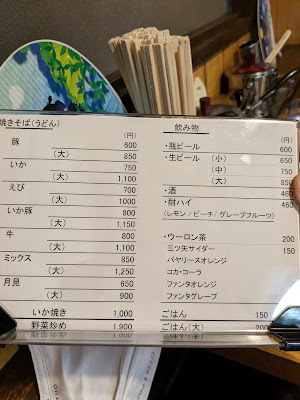 焼きそば(うどん)
(円)
豚 600
(大) 850
いか 750
(大) 1,100
えび 700
(大) 1000
いか豚 800
(大) 1,150
牛 800
(大) 1,100
ミックス 850
(大) 1,250
月見 650
(大) 900
いか焼き 1,000
野菜炒め 1,900
飲み物
(円)
・瓶ビール 600
・生ビール (小) 650
(中) 750
(大) 850
・酒 460
・酎ハイ 460
(レモン/ピーチ/グレープフルーツ)
・ウーロン茶 200
三ツ矢サイダー 150
バヤリースオレンジ
コカ・コーラ
ファンタオレンジ
ファンタグレープ
ごはん 150
ごはん(大) 200